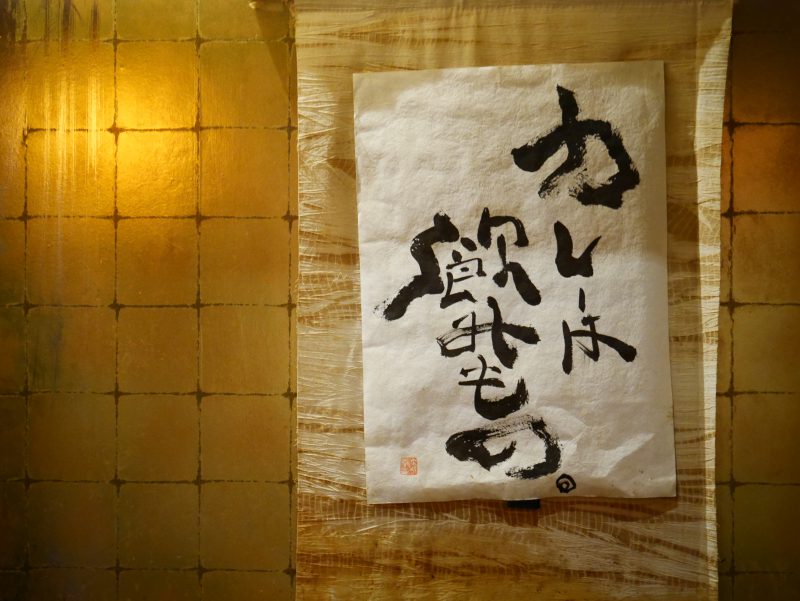 カレーは
飲みもの。